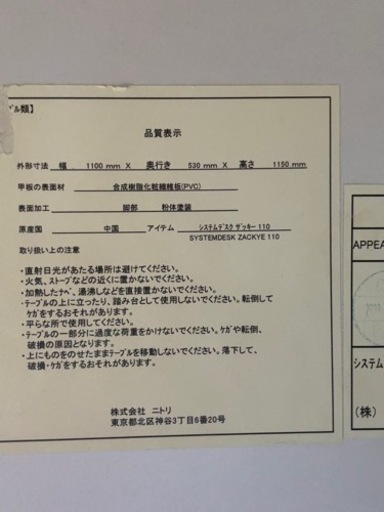 ブル類】
品質表示
外形寸法 幅 1100 mm X 奥行き 530 mm X 高さ 1150 mm
甲板の表面材 合成樹脂化粧繊維板(PVC)
表面加工 脚部 粉体塗装
原産国 中国 アイテム システムデスク ザッキー 110
SYSTEMDESK ZACKYE 110
取り扱い上の注意
・直射日光があたる場所は避けてください。
・火気、ストーブなどの近くに置かないでください。
・加熱したナベ、湯沸しなどを直接置かないでください。
・テーブルの上に立ったり、踏み台として使用しないでください。転倒して
ケガをするおそれがあります。
・平らな所で使用してください。
・テーブルの一部分に過度な荷重をかけないでください。ケガや転倒、
破損の原因となります。
・上にものをのせたままテーブルを移動しないでください。落下して、
破損・ケガをするおそれがあります。
株式会社 ニトリ
東京都北区神谷3丁目6番20号
APPEA
システム
(株)